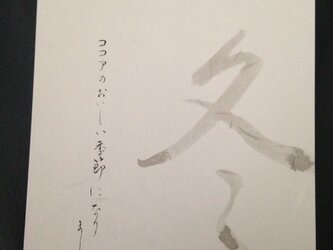 冬
ココアのおいしい季節になりまし